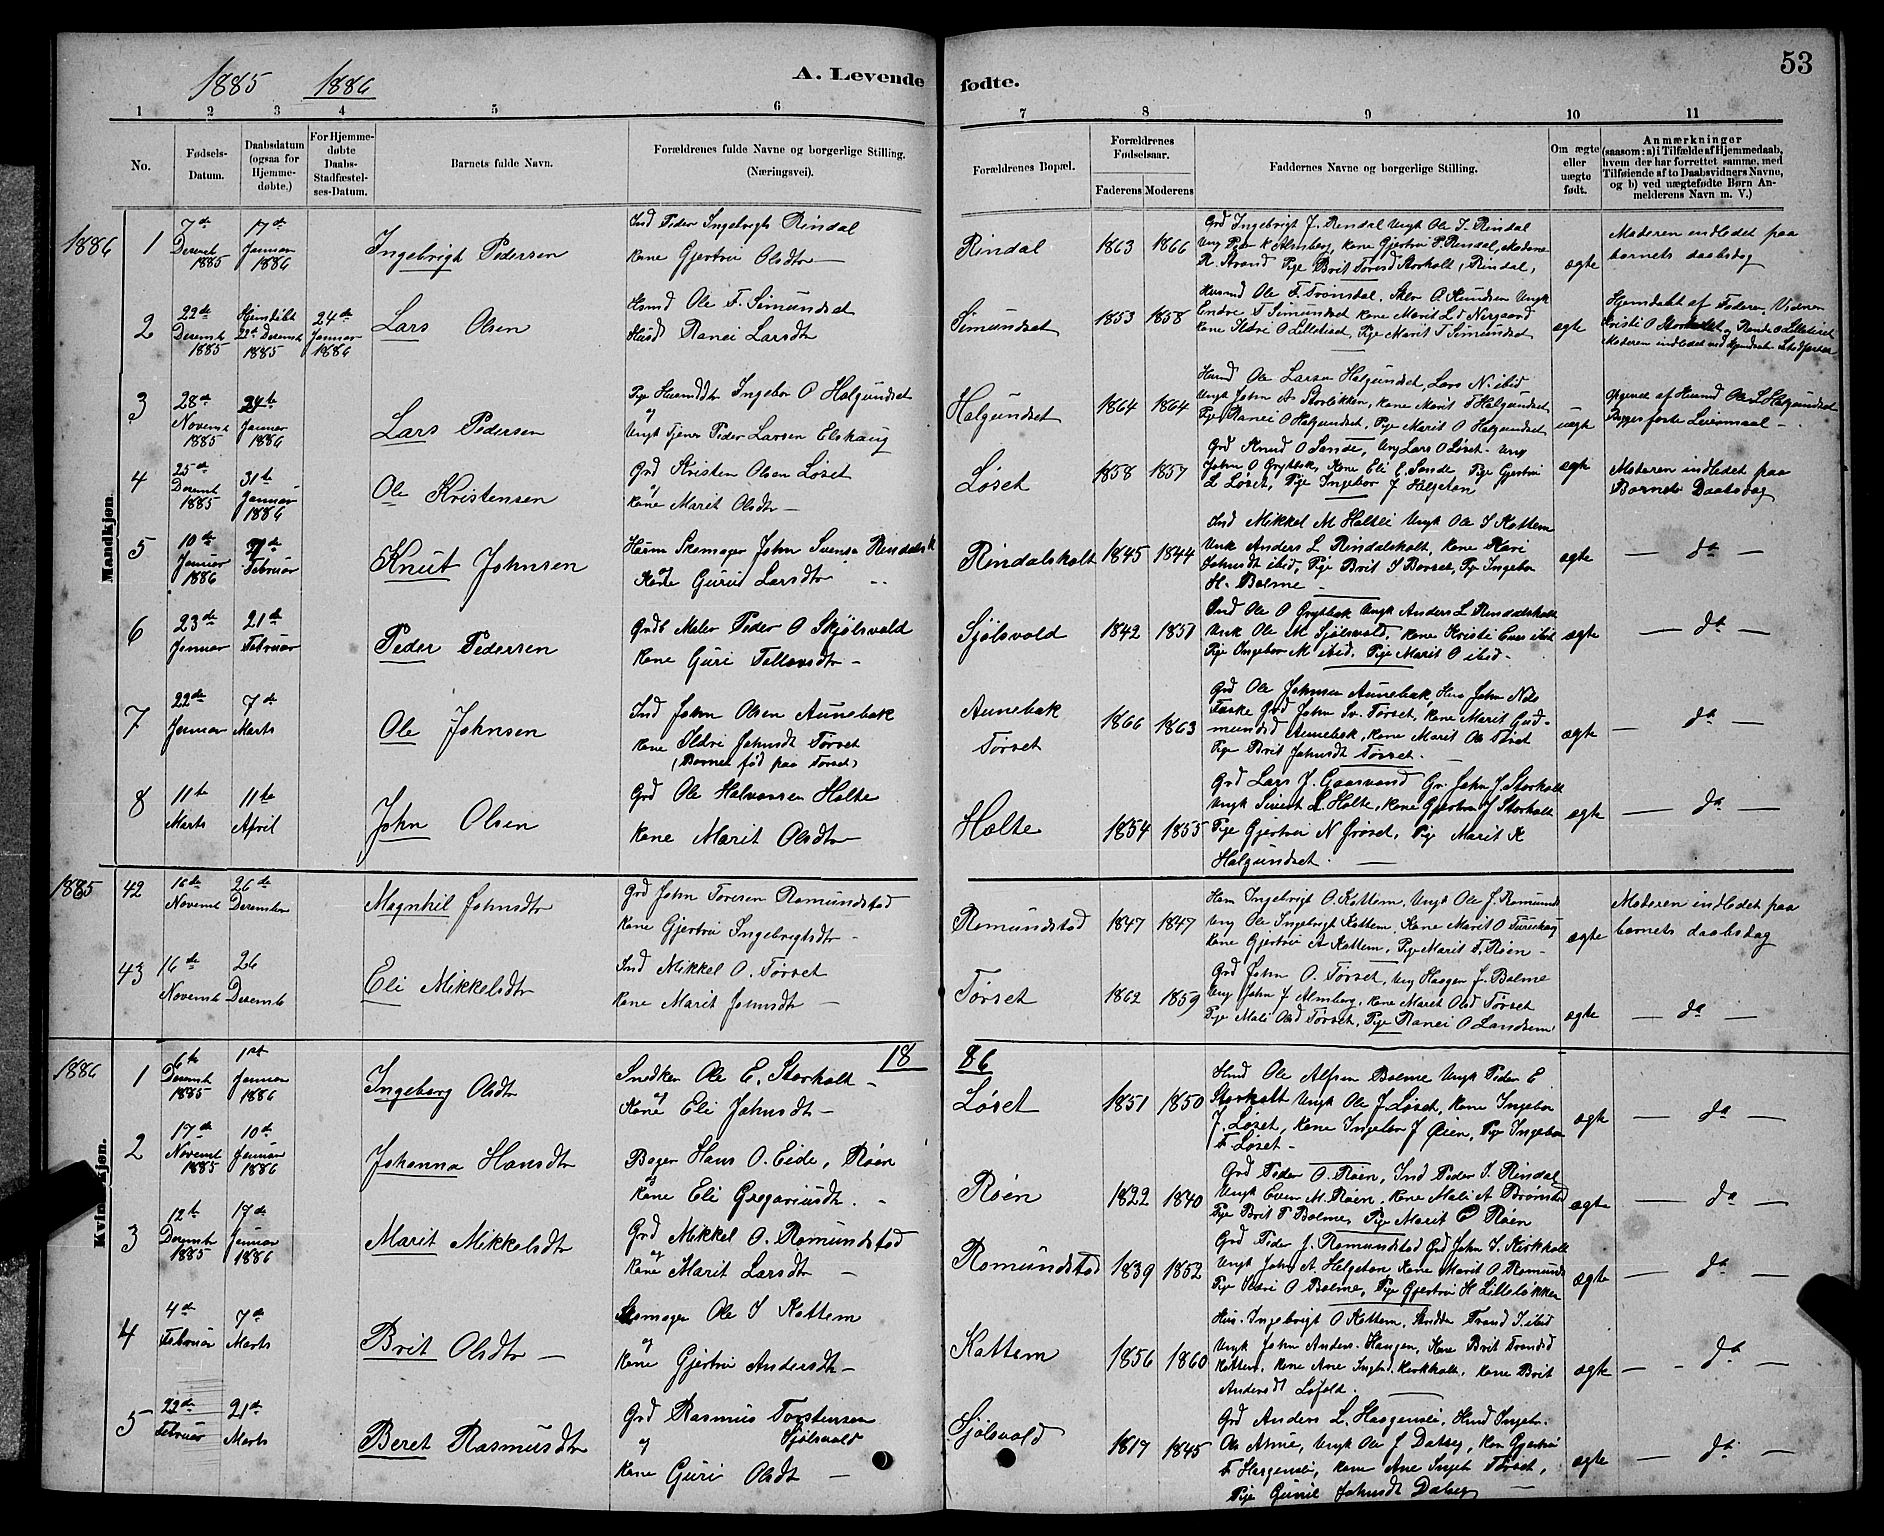 1885 1886 A. Levende fødte. 53
1 2 3 4 5 6 7 8 9 10 11
No.
Fødsels-Datum.
Daabsdatum (ogsaa for Hjemme-døbte.)
For Hjemme-døbte Daabs-Stadfæstel-ses-Datum.
Barnets fulde Navn.
Forældrenes fulde Navne og borgerlige Stilling. (Næringsvei).
Forældrenes Bopæl.
Forældrenes Fødselsaar.
Faderens Moderens
Faddernes Navne og borgerlige Stilling.
Om ægte eller uægte født.
Anmærkninger (saasom: a) i Tilfælde af Hjemmedaab, hvem der har forrettet samme, med Tilføiende af to Daabsvidners Navne, og b) ved uægtefødte Børn An-melderens Navn m. V.)
Mandkjøn.
1886 1 7de Decemb 1885 17de Januar 1886 Ingebrigt Pedersen
Ind Peder Ingebrigts Rindal
Kone Gjertru Olsdtr —
Rindal 1863 1866
Grd Ingebrigt J. Rindal Ungk Ole I. Rindal
Ung Peder K Almberg, Kone Gjertru P. Rindal,
R. Strand Pige Brit Storholt, Rindal,
ægte
Moderen indledet paa
barnets daabsdag
2 22de Decemb 1885 Hjemdøbt 22de Decemb 1885 24de Januar 1886 Lars Olsen
Husmd Ole F. Simundset
Ranei Larsdtr
Simundset 1853 1858
Husmd Ole F. Trønsdal, O Knudsen Ungk
Endre T Simundset Kone Marit L
Kone Ildri O Lilleløset, Pige Marit T Simundset
ægte
Hjemdøbt af Faderen Vidner
Kristi O Storholt,
Moderen indledet ved
3 28de Novemb 1885 24de Januar 1886 Lars Pedersen
Pige Ingebor O Halgundset
og
Ungk Tjener Peder Larsen Elshaug
Halgundset 1864 1864
Husmd Ole Larsen Halgundset, Lars N. ibid
Ungk John A Storløkken, Kone Marit T Halgundset
Pige Ranei O Halgundset, Pige Marit O Halgundset
uægt
Opgivet af Husmd Ole L Halgundset
Begges første Leiermaal —
4 25de Decemb 1885 31te Januar 1886 Ole Kristensen
Grd Kristen Olsen Løset
og
Kone Marit Olsdtr —
Løset 1858 1857
Grd Knud O Sande, Ung Lars O Løset - Ung
John O Grytbak, Kone Eli E. Sande Pige Gjertru
L Løset, Pige Ingebor J Helgetan
ægte
Moderen indledet paa
Barnets Daabsdag
5 10de Januar 1886 7de Februar Knut Johnsen
Skomager John Svensen Rindalsh
og
Kone Guru Larsdtr
Rindalsholt 1845 1844
Ind Mikkel M Holtli Ungk Ole S Kattem
Unk Anders L Rindalsholt, Kone Kari
Johnsdt ibid, Pige Brit I Børset, Pige Ingebor
H. Bolme —
ægte — do —
6 23de Januar 21de Februar Peder Pedersen
Maler Peder O Skjølsvold
Kone Guri Tellevsdtr —
Sjølsvold 1842 1851
Ind Ole O Grytbak Ungk Anders L Rindalsholt
Unk Ole M Sjølsvold, Kone Kristi Ever ibid
Pige Ingebor M ibid. Pige Marit O ibid. —
ægte — do —
7 22de Januar 7de Marts Ole Johnsen
Ind John Olsen Aunebak
Kone Ildri Johnsdt Tørset
(Barnet fød paa Tørset)
Aunebak
Tørset
1866 1863
Grd Ole Johnsen Aunebak, John Nils
Faske Grd John Sv. Tørset, Kone Marit Gud-
mundsd Aunebak, Kone Marit Ols Tørset
Pige Brit Johnsdt Tørset. —
ægte — do —
8 11te Marts 11te April John Olsen
Grd Ole Halvorsen Holte
Kone Marit Olsdtr
Holte 1854 1855
Grd Lars J. Gaasvand Gr. John J. Storholt
Ungk Sivert L. Holte, Kone Gjertru J Storholt
Pige Gjertru N Grøset, Pig Marit K
Halgundset. —
ægte — do —
1885 42 16de Novemb 26de December Magnhil Johnsdtr
Grd John Toresen Romundstad
Kone Gjertru Ingebrigtsdtr —
Romundstad 1847 1847
Ingebrigt O. Kattem, Ungk Ole J. Romunds
Ung Ole Ingebrigt Kattem, Kone Marit O Furuhaug
Kone Gjertru A Kattem, Pige Marit T. Røen —
ægte
Moderen indledet paa
barnets daabsdag
43 16de Novemb 26 Decemb Eli Mikkelsdtr
Ind Mikkel O. Tørset
Kone Marit Johnsdtr —
Tørset 1862 1859
Grd John O. Tørset, Ung Haagen J. Bolme
Ung John J Almberg, Kone Maret Olsd Tørset
Pige Mali Olsd Tørset, Pige Ranei O Landsem
ægte — do —
Kvindekjøn.
1886 18 86
1 6te Decemb 1885 1ste Januar 1886 Ingeborg Olsdtr
Snedker Ole E. Storholt —
og
Kone Eli Johnsdtr —
Løset 1851 1850
Hmd Ole Alfsen Bolme Ungk Peder E
Storholt Ungk Ole J Løset, Kone Ingebor
J. Løset, Kone Ingebor J Øien, Pige Ingebor
F. Løset —
ægte — do —
2 17de Novemb 1885 10de Januar 1886 Johanna Hansdtr
Bager Hans O. Eide, Røen
og
Kone Eli Gregariusdtr.
Røen 1822 1840
Grd Peder O. Røen, Ind Peder I. Rindal
Ungk Even M. Røen, Kone Mali A Brønstad
Pige Brit P Bolme, Pige Marit O Røen
ægte — do —
3 12te Decemb 1885 17de Januar 1886 Marit Mikkelsdtr
Grd Mikkel O. Romundstad
og
Kone Marit Larsdtr —
Romundstad 1839 1852
Grd Peder J. Romundstad Grd John I. Kirkholt
Ungk John A. Helgetan Kone Marit O Romunds
Pige Kari O Bolme, Pige Gjertru H Lilleløkken
ægte — do —
4 4de Februar 7de Marts Brit Olsdtr —
Skomager Ole I Kattem
og
Kone Gjertru Andersdt —
Kattem 1856 1860
Hus. Ingebrigt O Kattem, Trond I. ibid
Ungk John Anders. Haugen, Kone Brit Trondsd
Kattem, Kone Ane Ingbd. Kirkholt, Kone Brit
Andersdt Løfald. —
ægte — do —
5 22de Februar 21de Marts Beret Rasmusdtr
Grd Rasmus Torstensen
og Sjølsvold
Kone Guri Olsdt —
Sjølsvold 1817 1845
Grd Anders L. Haagensli, Hmd Ingebr.
Ols Aune, Ungk Ole J Dalseg, Kon Gjertru
F Haagensli, Kone Ane Ingeb Tørset,
Pige Gunil Johnsdt Dalseg —
ægte — do —